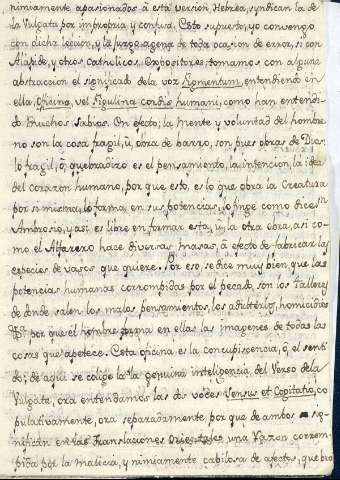 nimiamente apasionados à esta versión Hebrea, syndican la de
la Vulgata por impropria, y confusa. Esto supuesto, yo convengo
con dicha leccion, y la juzgo agena de toda ocasion de error, si con
Alapide, y otros Catholicos Expositores tomamos con alguna
abstraccion el significado de la voz Figmentum, entendiendo en
ella, Oficina, vel Figulina cordis humani, como han entendi-
do muchos Sabios. En efecto; la mente y voluntad del hombre
no son la cosa fragil, ù, obra de barro, son pues obras de Dios:
lo fragil, ò, quebradizo es el pensamiento, la intencion, la idea
del corazon humano, por que esto, es lo que obra la Creatura
por si misma, lo forma, en sus potencias, lo finge como dice Sn
Ambrosio, y asi es libre en formar esta, ù, la otra obra, asi co-
mo el Alfarero hace diversas masas, à efecto de fabricar las
especies de vasos que quiere. Por eso, se dice muy bien, que las
potencias humanas corrompidas por el pecado, son los Talleres
de donde salen los malos pensamientos, los adulterios, homicidios
&a. por que el hombre forma en ellas las imagenes de todas las
cosas que apetece. Esta oficina es la concupiscencia, ò, el senti-
do; de aqui se colige la genuina inteligencia del Verso de la
Vulgata, ora entendamos las dos voces Sensus et Cogitatio, co
pulativamente, ora separadamente, por que de ambos sig-
nifican en las Translaciones Orientales una Razon corrom-
pida por la malicia, y nimiamente cabilosa de afectos, que bro